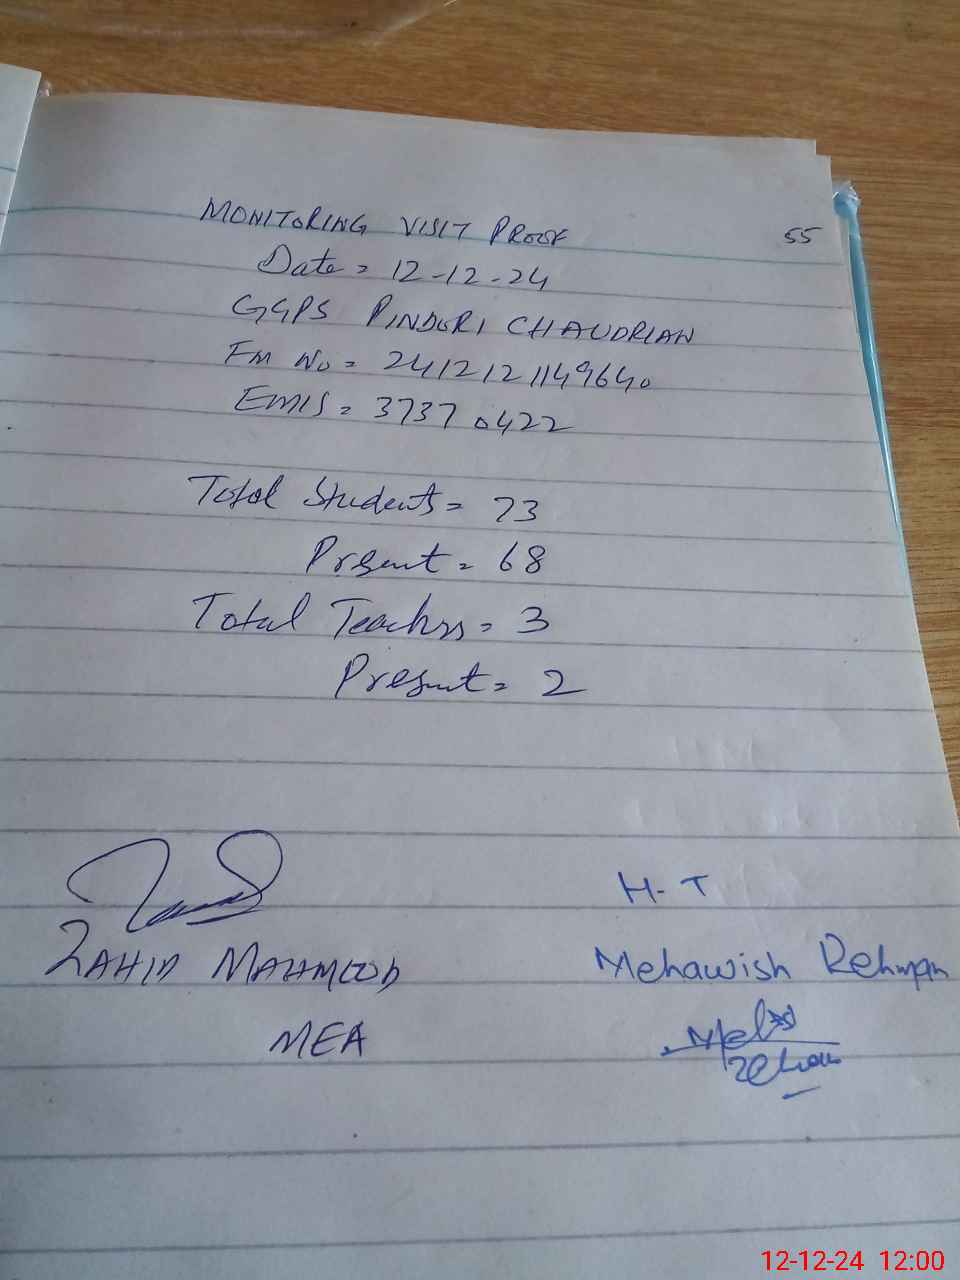 MONITORING VISIT PROOF 55
Date = 12-12-24
GGPS PINDORI CHAUDRIAN
Fm No = 2412121149640
EMIS = 37370422
Total Students = 73
Present = 68
Total Teachers = 3
Present = 2
H-T
ZAHID MAHMOOD Mehawish Rehman
MEA
12-12-24 12:00